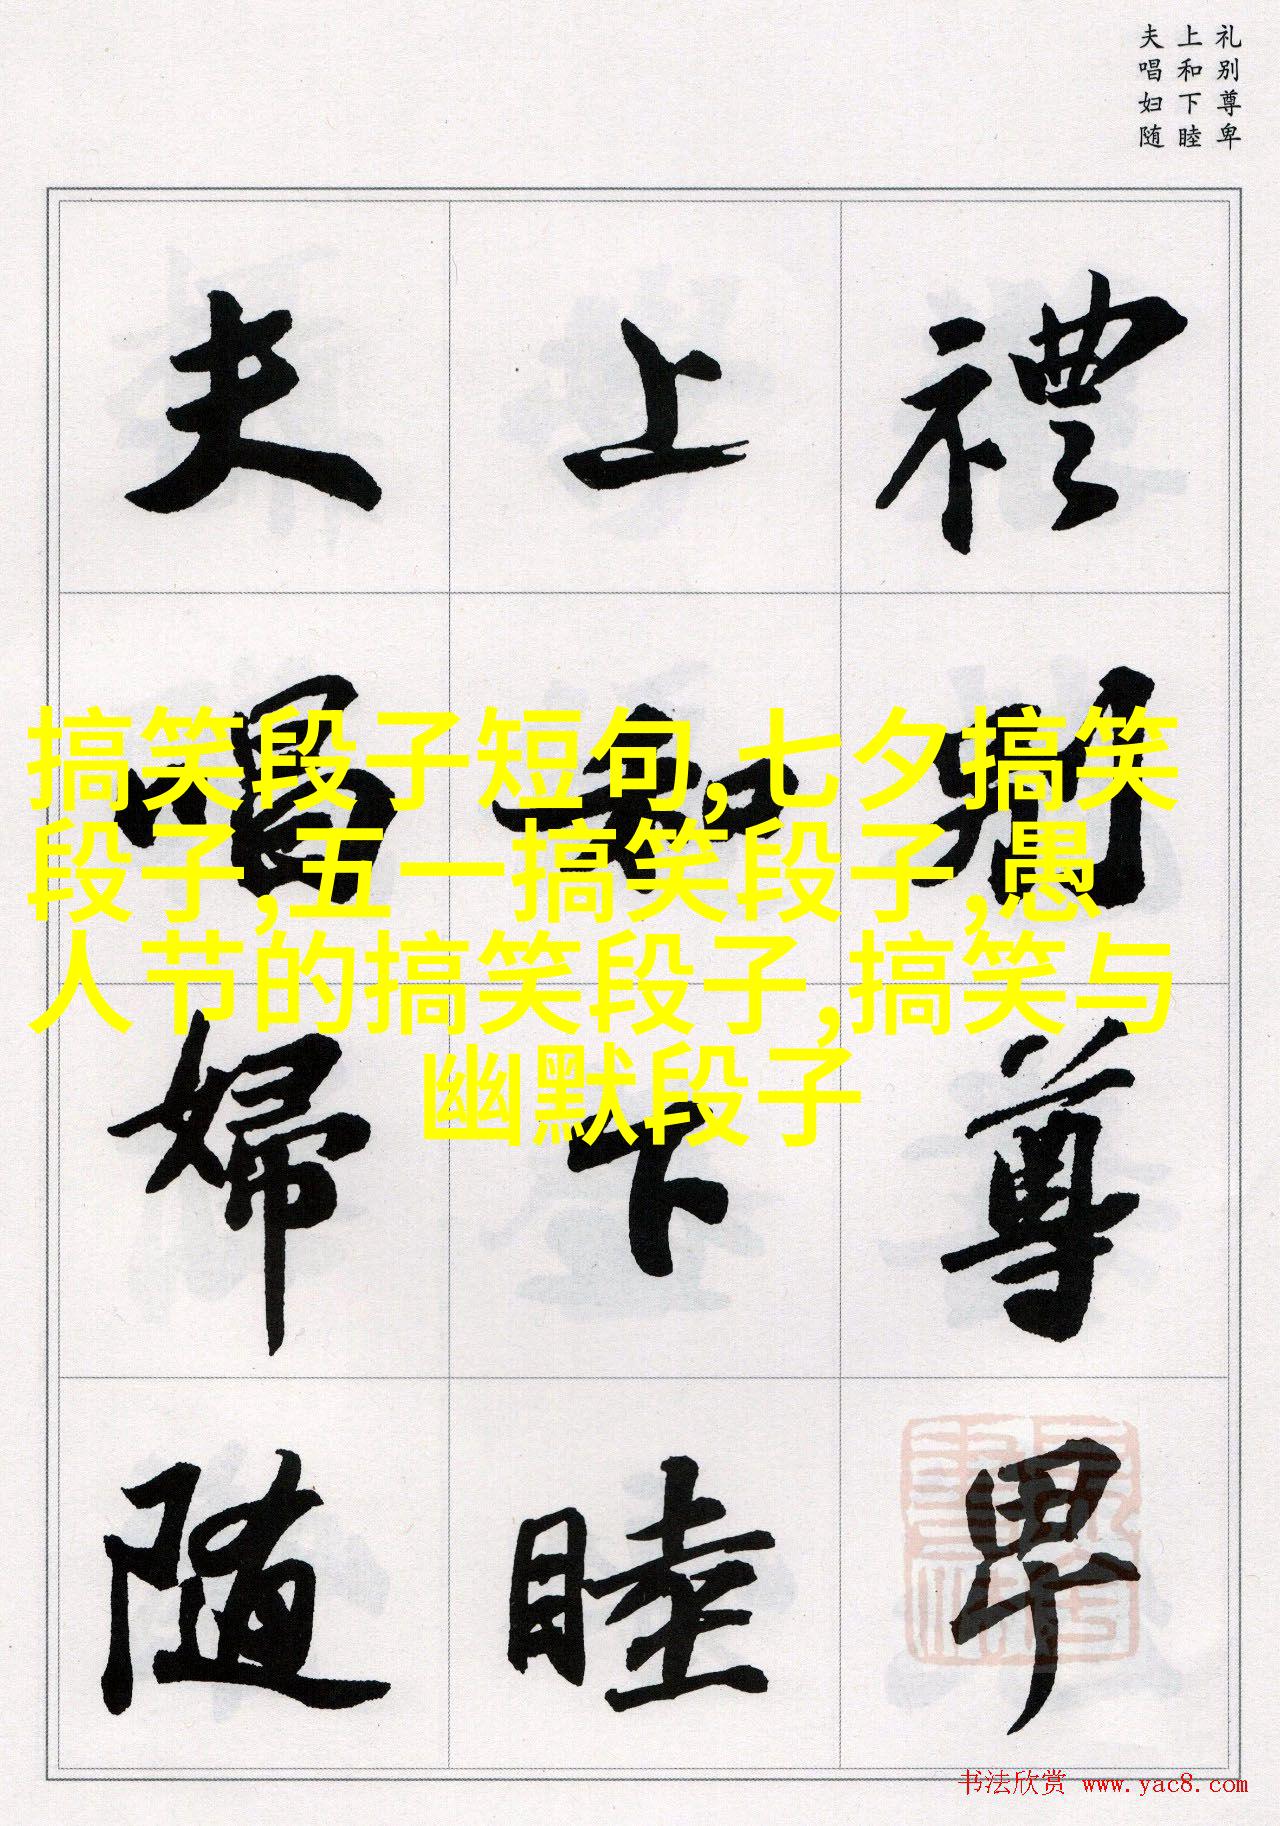 礼别尊卑
上和下睦
夫唱妇随
禮別尊卑
上和下睦
夫唱婦随
搞笑段子短句,七夕搞笑
段子,五一搞笑段子,愚
人节的搞笑段子,搞笑与
幽默段子
书法欣赏 www.yac8.com